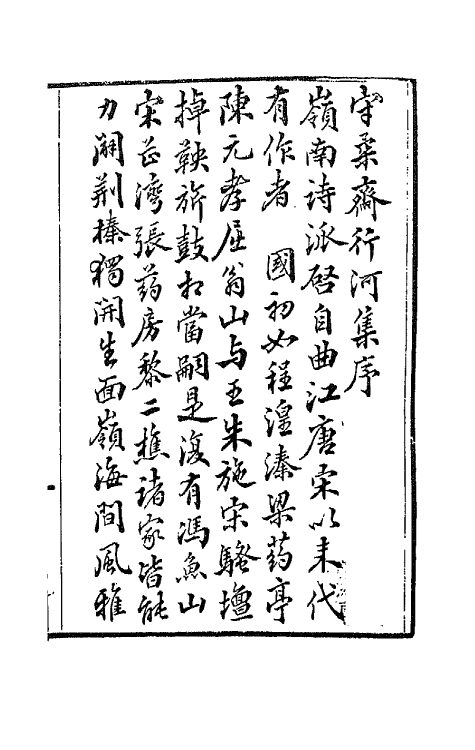 宋桑齋行河集序
嶺南詩派啓自曲江唐宋以來代
有作者　國初如程湟溱梁药亭
陳元孝屈翁山与王朱施宋騷壇
掉鞅旂鼓相當嗣是復有馮魚山
宋芷湾張药房黎二樵诸家皆能
力闢荆榛獨開生面嶺海間風雅